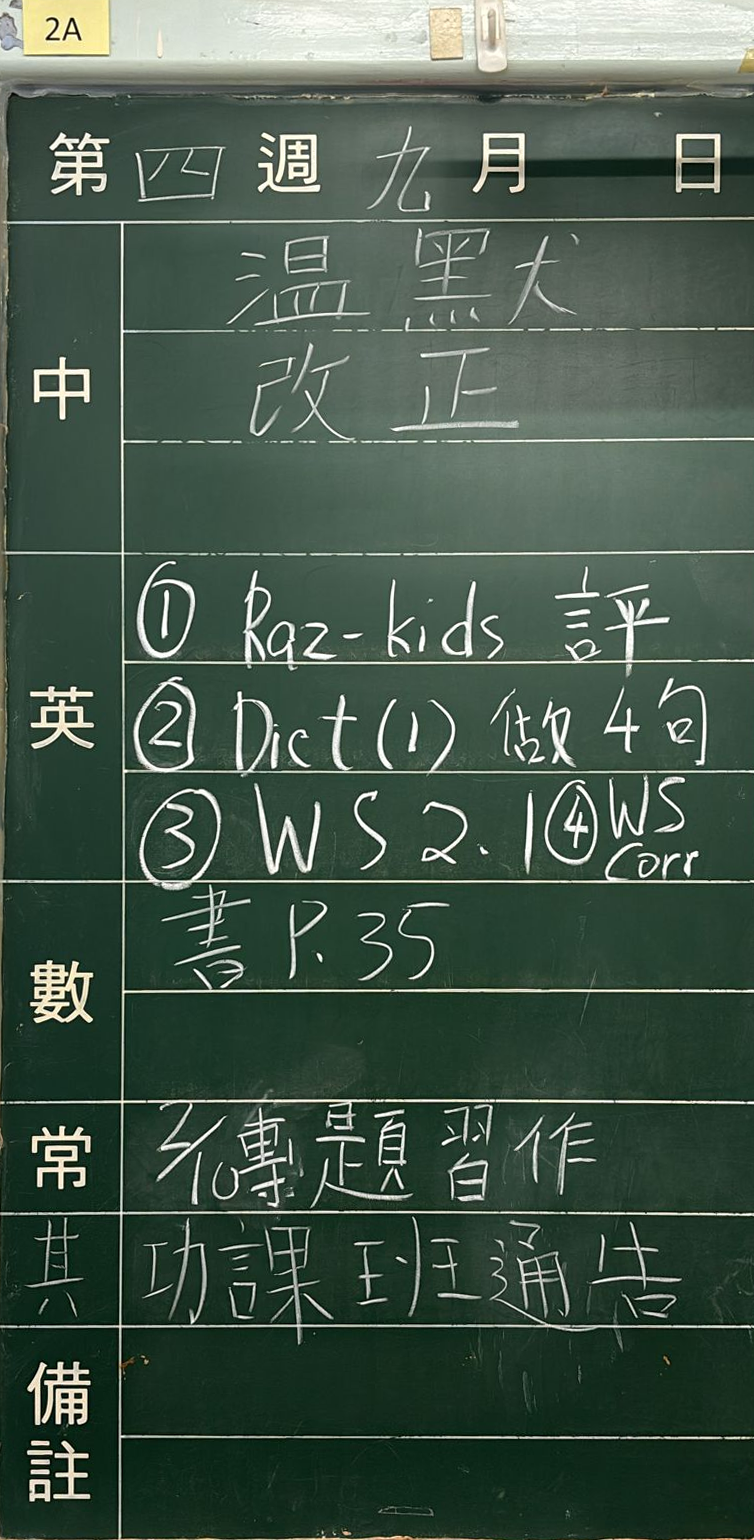 2A
第四週九月 日
中
温黑犬
改正
英
① Raz-kids 評
② Dict(1) 做4句
③ WS 2.1 ④ WS Corr
數
書 P.35
常
2/10 專題習作
其
功課班通告
備註